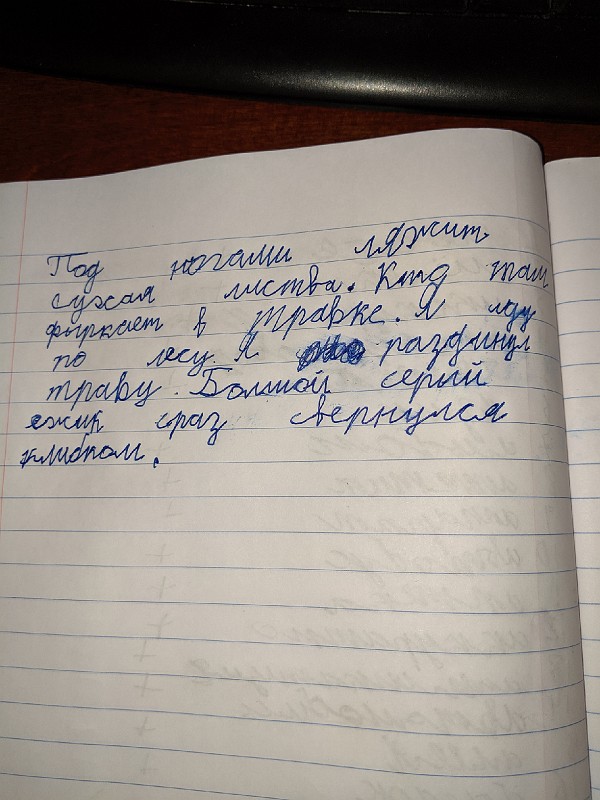 Под ногами ляжит
сухая листва. Кто там
фыркает в травке. Я иду
по лесу. Я раздвинул
траву. Болшой серый
ежик сраз свернулся
клибком.